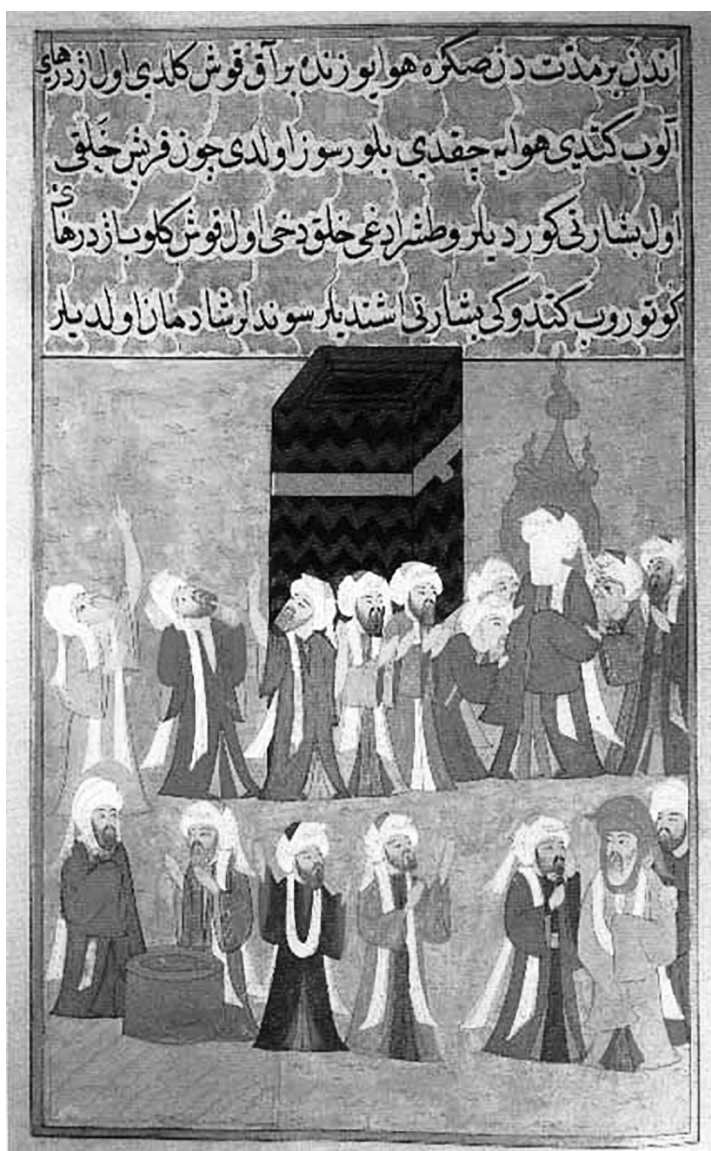 اندن بر مدّت دن صکره هوا یوزنده بر آق قوش کلدی اول ازدرهایی
آلوب کتدی هوایه چقدی بلورسوز اولدی چون قریش خلقی
اول بشارتی کوردیلر و طشرادغی خلق دخی اول قوش کلوب ازدرهایی
کوتوروب کتدوکی بشارتی اشتدیلر سوندلر شادمان اولدیلر